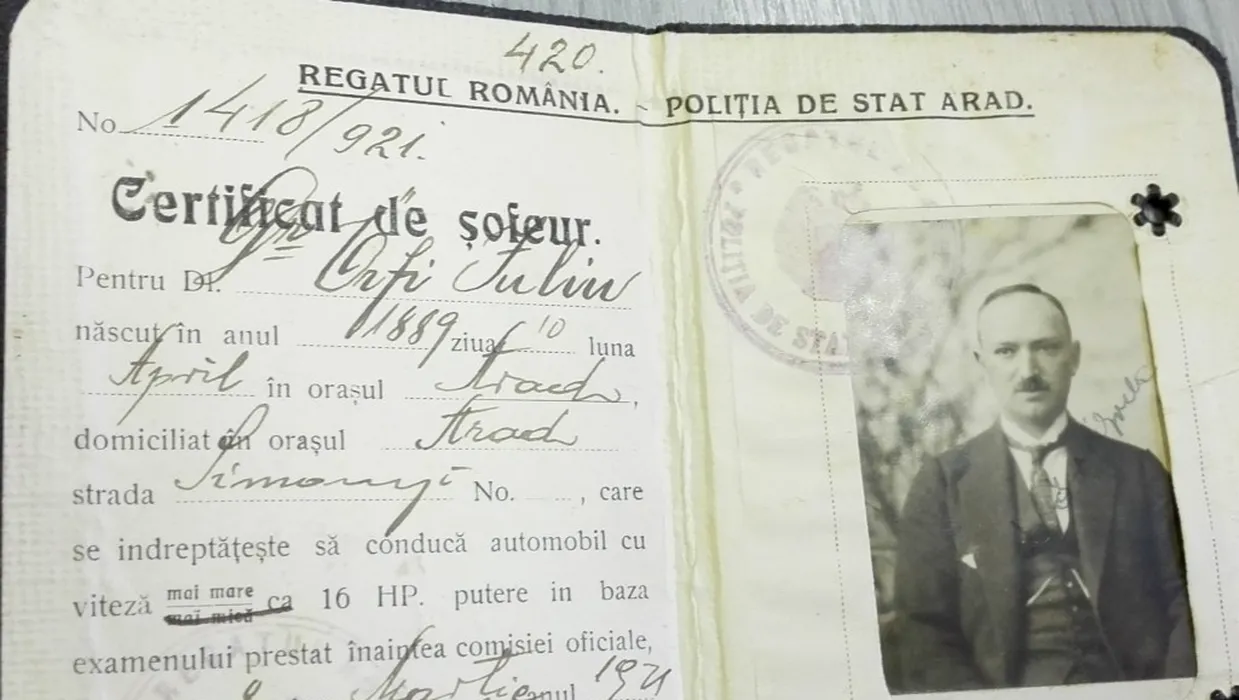 420.
REGATUL ROMÂNIA. - POLIȚIA DE STAT ARAD.
No 1418/921.
Certificat de șofeur.
Pentru Dl. Orfi Iuliu
născut în anul 1889 ziua 10 luna
April în orașul Arad,
domiciliat în orașul Arad
strada Simonyi No. , care
se indreptățește să conducă automobil cu
viteză mai mare mai mică ca 16 HP. putere in baza
examenului prestat înaintea comisiei oficiale,
Martie anul 1921
REGATUL
POLIȚIA DE STAT